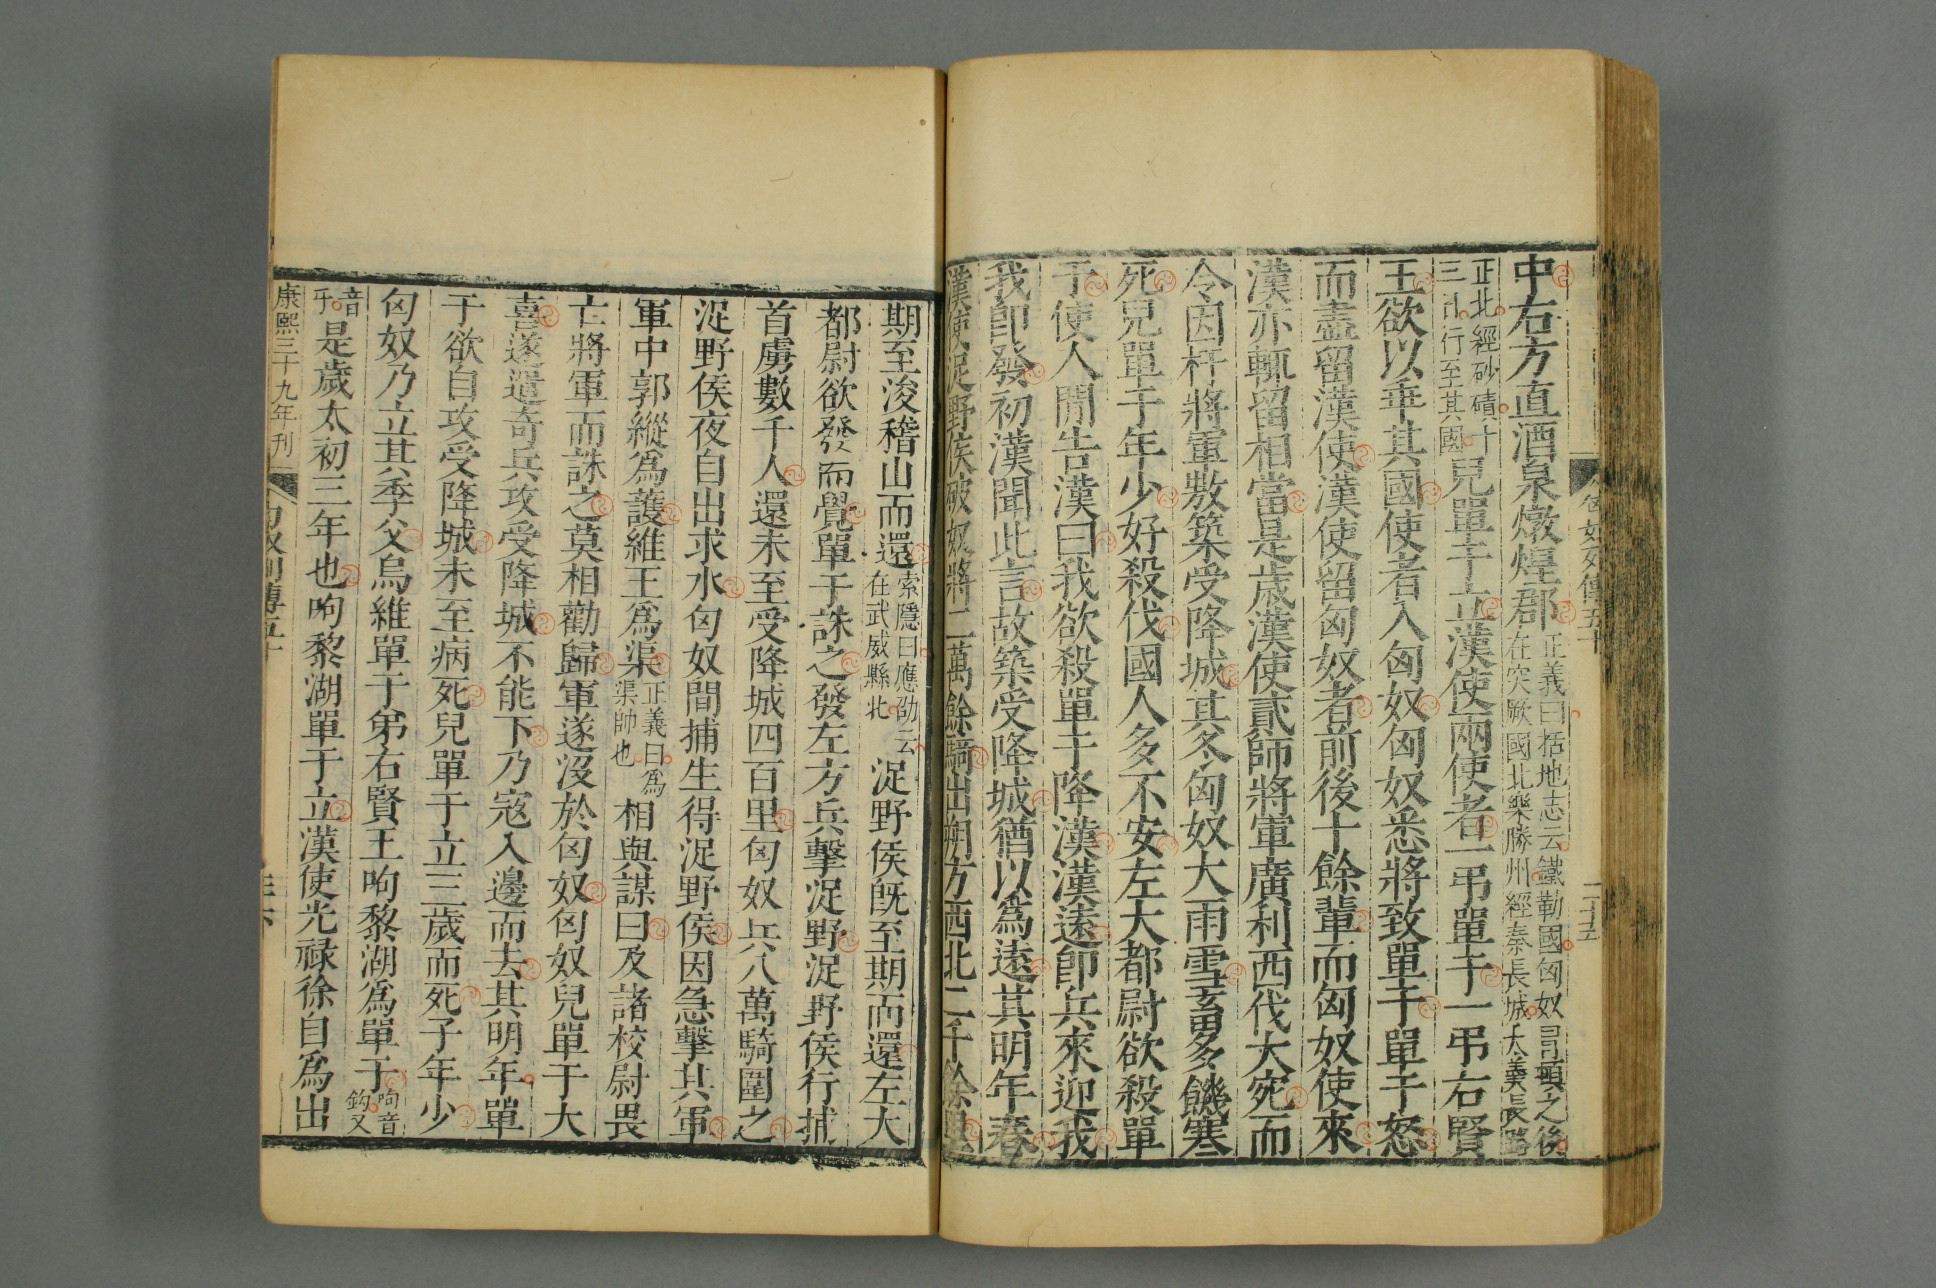 中右方直酒泉燉煌郡正義曰括地志云鐵勒國匈奴冒頓之後在突厥國北樂勝州經秦長城大羹長路
正北經砂磧十三日行至其國兒單于立漢使兩使者一弔單于一弔右賢
王欲以乖其國使者入匈奴匈奴悉將致單于單于怒
而盡留漢使漢使留匈奴者前後十餘輩而匈奴使來
漢亦輒留相當是歲漢使貳師將軍廣利西伐大宛而
令因杅將軍敖築受降城其冬匈奴大雨雪畜多饑寒
死兒單于年少好殺伐國人多不安左大都尉欲殺單
于使人閒告漢曰我欲殺單于降漢漢遠即兵來迎我
我即發初漢聞此言故築受降城猶以為遠其明年春
漢使浞野侯破奴將二萬餘騎出朔方西北二千餘里
匈奴列傳五十
二十五
期至浚稽山而還索隱曰應劭云在武威縣北浞野侯旣至期而還左大
都尉欲發而覺單于誅之發左方兵擊浞野浞野侯行捕
首虜數千人還未至受降城四百里匈奴兵八萬騎圍之
浞野侯夜自出求水匈奴間捕生得浞野侯因急擊其軍
軍中郭縱爲護維王爲渠正義曰爲渠帥也相與謀曰及諸校尉畏
亡將軍而誅之莫相勸歸軍遂沒於匈奴匈奴兒單于大
喜遂遣奇兵攻受降城不能下乃寇入邊而去其明年單
于欲自攻受降城未至病死兒單于立三歲而死子年少
匈奴乃立其季父烏維單于弟右賢王呴黎湖爲單于呴音鈎又
音吁是歲太初三年也呴黎湖單于立漢使光祿徐自爲出
康熙三十九年刊
匈奴列傳五十